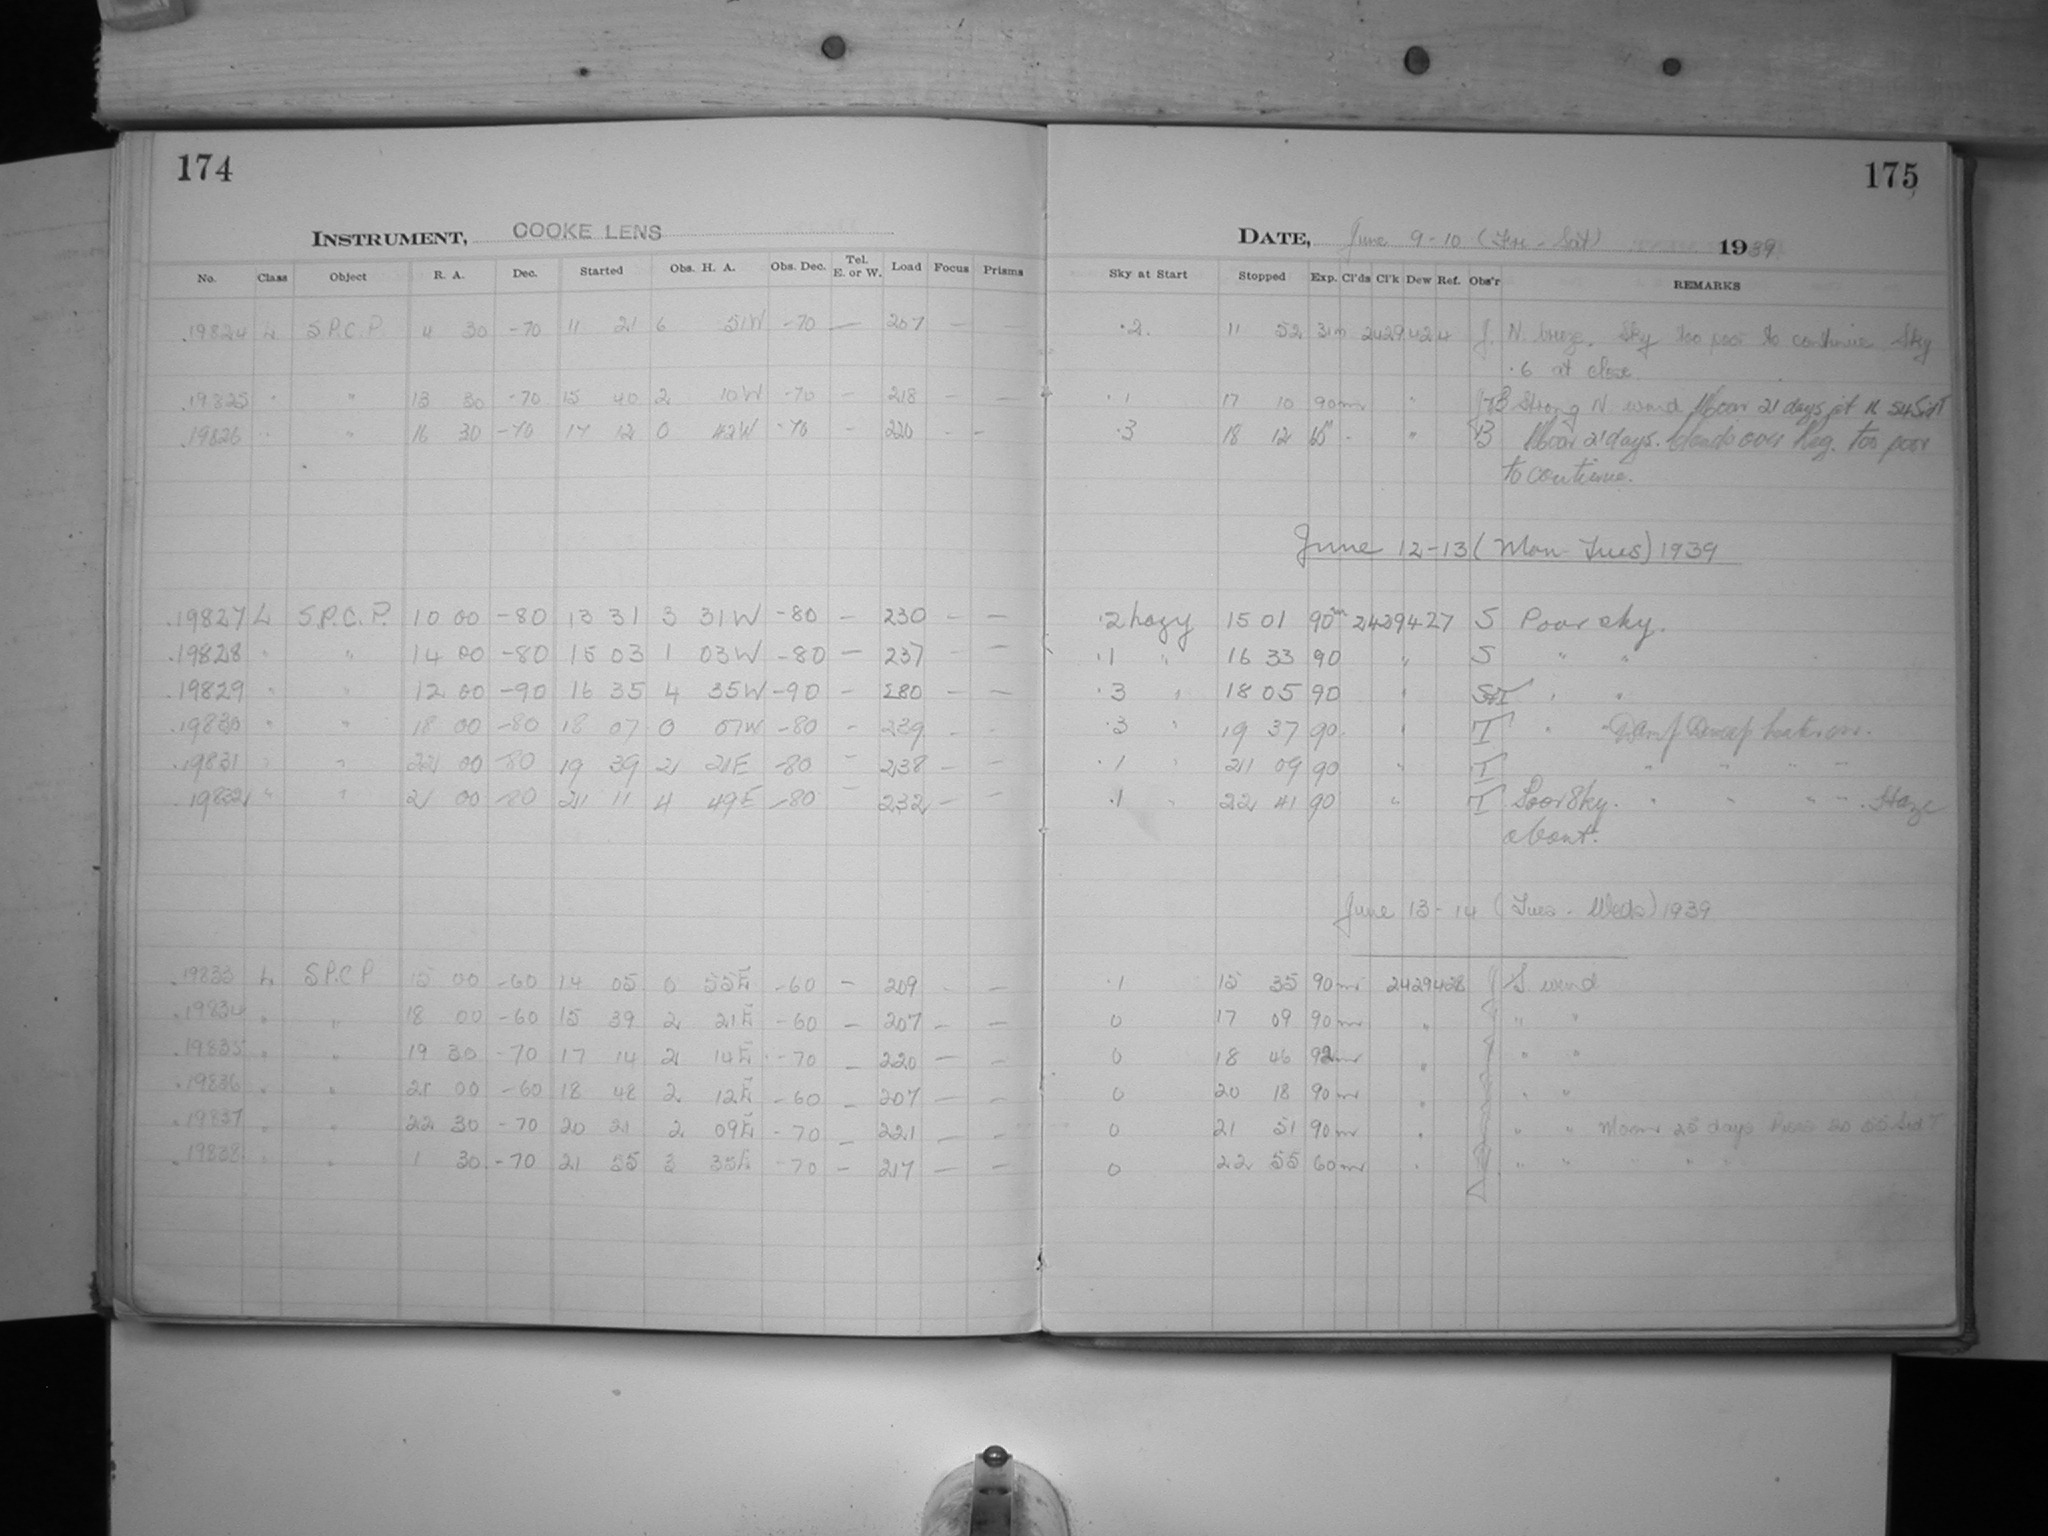 174
INSTRUMENT, COOKE LENS
No. Class Object R. A. Dec. Started Obs. H. A. Obs. Dec. Tel. E. or W. Load Focus Prisms
19824 L S.P.C.P. 4 30 -70 11 21 6 51W -70 — 207 — —
19825 " " 13 30 -70 15 40 2 10W -70 — 218 — —
19826 " " 16 30 -70 17 12 0 42W -70 — 220 — —
19827 L S.P.C.P. 10 00 -80 13 31 3 31W -80 — 230 — —
19828 " " 14 00 -80 15 03 1 03W -80 — 237 — —
19829 " " 12 00 -90 16 35 4 35W -90 — 280 — —
19830 " " 18 00 -80 18 07 0 07W -80 — 239 — —
19831 " " 22 00 -80 19 39 2 21E -80 — 238 — —
19832 " " 2 00 -80 21 11 4 49E -80 — 232 — —
19833 L S.P.C.P 15 00 -60 14 05 0 55E -60 — 209 — —
19834 " " 18 00 -60 15 39 2 21E -60 — 207 — —
19835 " " 19 30 -70 17 14 2 14E -70 — 220 — —
19836 " " 21 00 -60 18 48 2 12E -60 — 207 — —
19837 " " 22 30 -70 20 21 2 09E -70 — 221 — —
19838 " " 1 30 -70 21 55 3 35E -70 — 217 — —
175
DATE, June 9-10 (Fri - Sat) 1939
Sky at Start Stopped Exp. Cl'ds Cl'k Dew Ref. Obs'r REMARKS
.2 11 52 31m 2429424 J. N. breeze. Sky too poor to continue Sky
.6 at close.
.1 17 10 90m " Strong N wind Moon 21 days
.3 18 12 " B Moon 21 days. Clouds over Reg. too poor
to continue.
June 12-13 (Mon-Tues) 1939
.2 hazy 15 01 90m 2429427 S Poor sky.
.1 " 16 33 90 " S " "
.3 " 18 05 90 " S+T " "
.3 " 19 37 90 " T "
.1 " 21 09 90 " T " " " "
.1 " 22 41 90 " T Poor Sky. " " " " Haze
about.
June 13-14 (Tues - Weds) 1939
.1 15 35 90m 2429428 J S. wind
0 17 09 90m " " "
0 18 46 92m " " "
0 20 18 90m " " "
0 21 51 90m " " " Moon 25 days
0 22 55 60m " " "